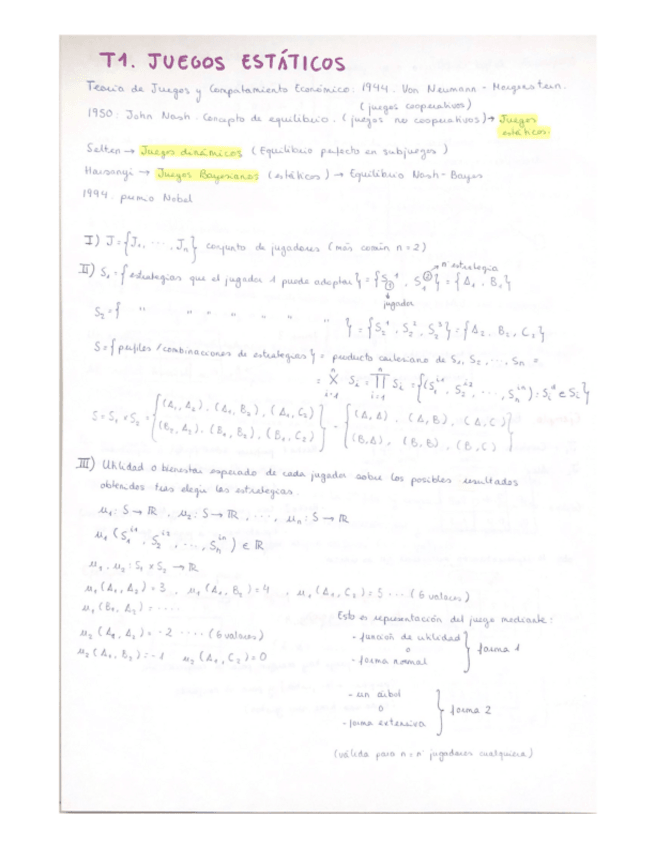 T1. JUEGOS ESTÁTICOS
Teoría de Juegos y Comportamiento Económico: 1944. Von Neumann - Morgenstern.
(juegos cooperativos)
1950: John Nash. Concepto de equilibrio. (juegos no cooperativos) → Juegos
estáticos.
Selten → Juegos dinámicos (Equilibrio perfecto en subjuegos)
Harsanyi → Juegos Bayesianos (estáticos) → Equilibrio Nash-Bayes
1994. premio Nobel
I) J = {J₁, ..., Jₙ} conjunto de jugadores (más común n = 2)
nº estrategia
II) S₁ = {estrategias que el jugador 1 puede adoptar} = {S₁¹, S₁²} = {A₁, B₁}
jugador
S₂ = { " " " " " " " } = {S₂¹, S₂², S₂³} = {A₂, B₂, C₂}
S = {perfiles/combinaciones de estrategias} = producto cartesiano de S₁, S₂, ..., Sₙ =
= ⨉ⁿᵢ₌₁ Sᵢ = ∏ⁿᵢ₌₁ Sᵢ = {(S₁^{i1}, S₂^{i2}, ..., Sₙ^{in}) : Sᵢ^{j} ∈ Sᵢ}
S = S₁ x S₂ = {(A₁, A₂), (A₁, B₂), (A₁, C₂) = {(A, A), (A, B), (A, C)
(B₁, A₂), (B₁, B₂), (B₁, C₂)} (B, A), (B, B), (B, C)}
III) Utilidad o bienestar esperado de cada jugador sobre los posibles resultados
obtenidos tras elegir las estrategias.
u₁: S → ℝ, u₂: S → ℝ, ..., uₙ: S → ℝ
u₁ (S₁^{i1}, S₂^{i2}, ..., Sₙ^{in}) ∈ ℝ
u₁, u₂: S₁ x S₂ → ℝ
u₁ (A₁, A₂) = 3, u₁ (A₁, B₂) = 4, u₁ (A₁, C₂) = 5 ... (6 valores)
u₁ (B₁, A₂) = ....
u₂ (A₁, A₂) = -2 ..... (6 valores)
u₂ (A₁, B₂) = -1 u₂ (A₁, C₂) = 0
Esto es representación del juego mediante:
- función de utilidad
o
- forma normal
} forma 1
- un árbol
o
- forma extensiva
} forma 2
(válida para n = nº jugadores cualquiera)